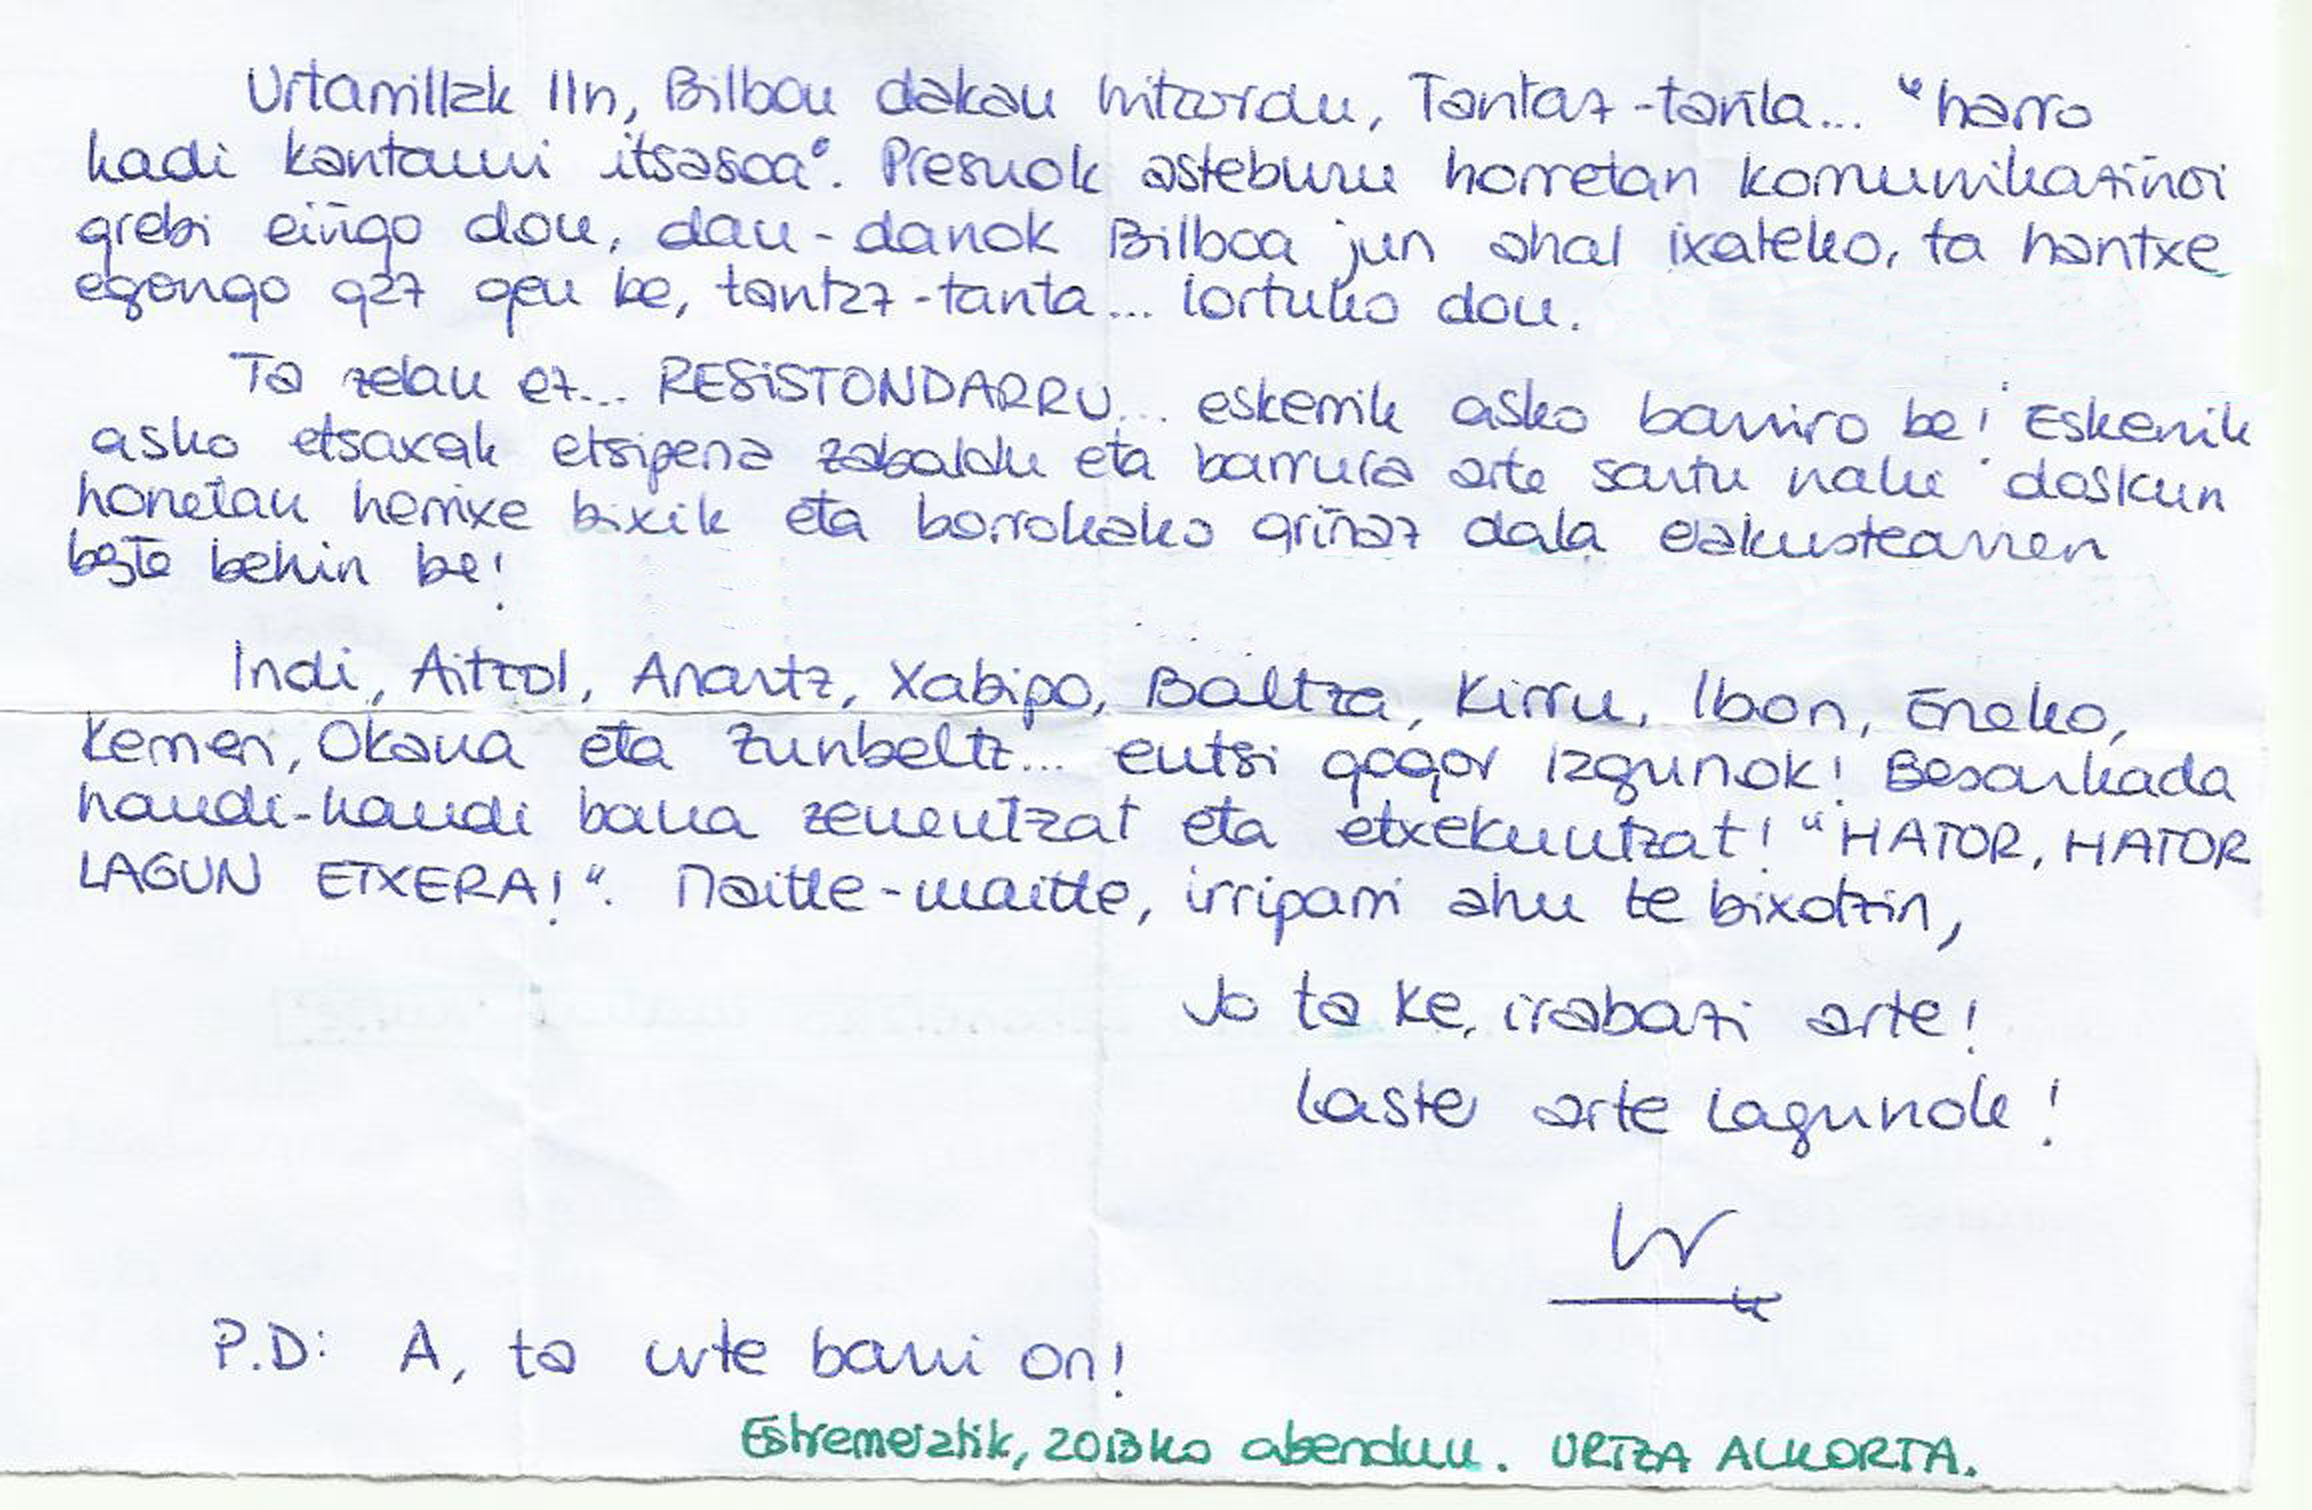 Urtarrillak 11n, Bilbon dakau hitzordu, Tantaz-tanta... "harro
hadi kantauri itsasoa". Presuok asteburu horretan komunikaziñoi
grebi eiñgo dou, dan-danok Bilboa jun ahal ixateko, ta hantxe
egongo gaz geu be, tantaz-tanta... lortuko dou.
Ta zelan ez... RESiSTONDARRU... eskerrik asko barriro be! Eskerrik
asko etsaxak etsipena zabaldu eta barrura arte sartu nahi doskun
honetan herrixe bixik eta borrokako griñaz dala erakustearren
beste behin be!
Indi, Aitzol, Anartz, Xabipo, Baltza, Kirru, Ibon, Eneko,
Kemen, Okana eta Zunbeltz... eutsi gogor izgunok! Besarkada
haudi-haudi bana zeuentzat eta etxekuntzat! "HATOR, HATOR
LAGUN ETXERA!". Maitte-maitte, irriparri ahu te bixotzin,
Jo ta Ke, irabazi arte!
Laste arte lagunok!
Ur
P.D: A, ta urte barri on!
Estremeratik, 2013ko abenduu. URTZA ALKORTA.